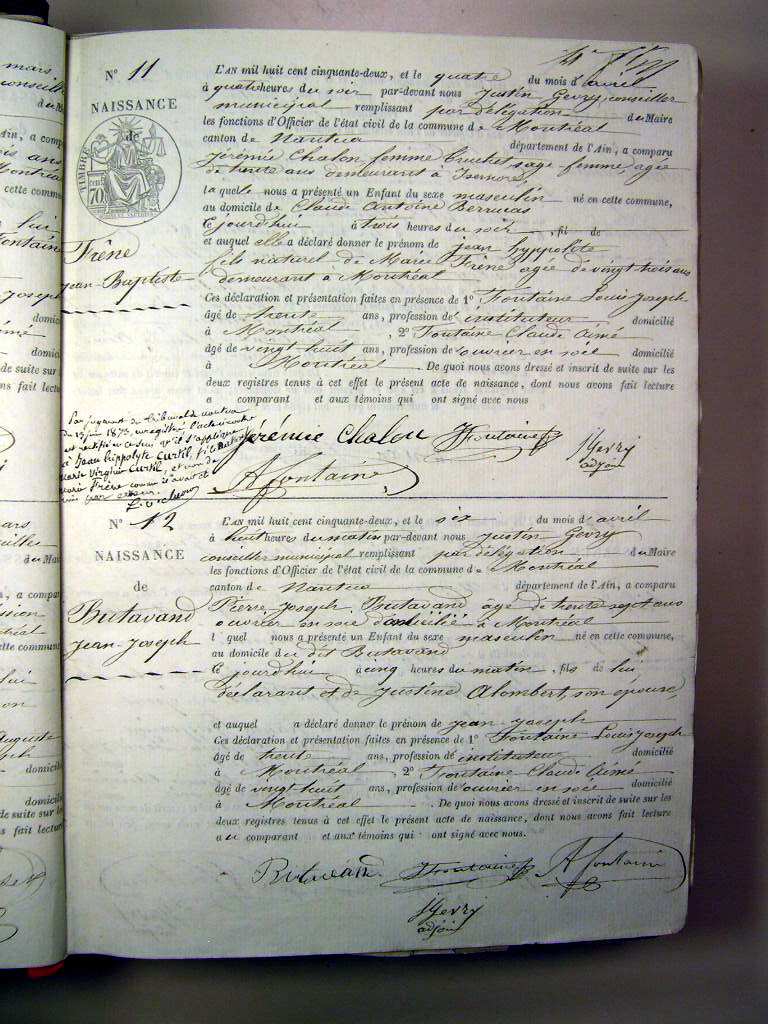 N° 11
NAISSANCE
de
TIMBRE
70
Frêne
jean-Baptiste
L'AN mil huit cent cinquante-deux, et le quatre du mois d'avril
à quatre heures du soir par-devant nous Justin Gevry conseiller
municipal remplissant par délégation du Maire
les fonctions d'Officier de l'état civil de la commune de Montréal
canton de Nantua département de l'Ain, a comparu
jérémie Chalon femme Cruchet sage-femme, agée
de trente ans demeurant à Isernore,
laquelle nous a présenté un Enfant du sexe masculin né en cette commune,
au domicile de Claude Antoine
Ce jourd'hui à trois heures du soir, fil de
et auquel elle a déclaré donner le prénom de jean hyppolite
fils naturel de Marie Frêne agée de vingt trois ans
demeurant à Montréal
Ces déclaration et présentation faites en présence de 1° Fontaine Louis joseph
âgé de trente ans, profession d'instituteur domicilié
à Montréal, 2° Fontaine Claude Aimé
âgé de vingt huit ans, profession d'ouvrier en soie domicilié
à Montréal. De quoi nous avons dressé et inscrit de suite sur les
deux registres tenus à cet effet le présent acte de naissance, dont nous avons fait lecture
a comparant et aux témoins qui ont signé avec nous
Par jugement du tribunal de nantua
du 13 juin 1873, enregistré, l'acte ci-contre
est rectifié en ce sens qu'il s'applique
à Jean hippolyte Curtil, fils naturel
marie Virginie Curtil, et non de
marie Frêne comme il avait été
mis par erreur.
Jérémie Chalon JFontaine jGevry
adjoin
Afontaine
N° 12
NAISSANCE
de
Butavand
jean-joseph
L'AN mil huit cent cinquante-deux, et le six du mois d'avril
à huit heure du matin par-devant nous justin Gevry
conseiller municipal remplissant par délégation du Maire
les fonctions d'Officier de l'état civil de la commune de Montréal
canton de Nantua département de l'Ain, a comparu
Pierre joseph Butavand âgé de trente sept ans
ouvrier en soie domicilié à Montréal
l quel nous a présenté un Enfant du sexe masculin né en cette commune,
au domicile du dit Butavand
Ce jourd'hui à cinq heures du matin, fils de lui,
déclarant et de justine Alombert, son épouse
et auquel a déclaré donner le prénom de jean joseph
Ces déclaration et présentation faites en présence de 1° Fontaine Louis joseph
âgé de trente ans, profession d'instituteur domicilié
à Montréal, 2° Fontaine Claude Aimé
âgé de vingt huit ans, profession d'ouvrier en soie domicilié
à Montréal. De quoi nous avons dressé et inscrit de suite sur les
deux registres tenus à cet effet le présent acte de naissance, dont nous avons fait lecture
au comparant et aux témoins qui ont signé avec nous.
Butavand JFontaine Afontaine
jGevry
adjoin